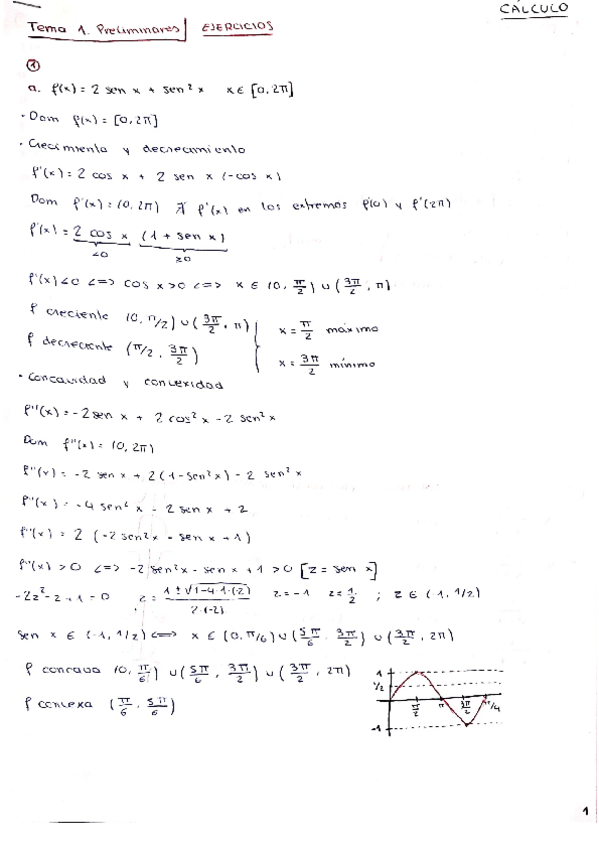 CÁLCULO
Tema 1. Preliminares | EJERCICIOS
①
a. f(x) = 2 sen x + sen² x   x ∈ [0, 2π]
· Dom f(x) = [0, 2π]
· Crecimiento y decrecimiento
f'(x) = 2 cos x + 2 sen x (-cos x)
Dom f'(x) = (0, 2π) ∄ f'(x) en los extremos f'(0) y f'(2π)
f'(x) = 2 cos x (1 + sen x)
<0   ≥0
f'(x) <0 <=> cos x > 0 <=> x ∈ (0, π/2) ∪ (3π/2, π)
f creciente (0, π/2) ∪ (3π/2, π)   x = π/2 máximo
f decreciente (π/2, 3π/2)   x = 3π/2 mínimo
· Concavidad y convexidad
f''(x) = -2 sen x + 2 cos² x - 2 sen² x
Dom f''(x) = (0, 2π)
f''(x) = -2 sen x + 2(1 - sen² x) - 2 sen² x
f''(x) = -4 sen² x - 2 sen x + 2
f''(x) = 2 (-2 sen² x - sen x + 1)
f''(x) > 0 <=> -2 sen² x - sen x + 1 > 0 [z = sen x]
-2z² - z + 1 = 0   z = 1 ± √1-4·1·(-2) / 2·(-2)   z = -1   z = 1/2 ; z ∈ (-1, 1/2)
sen x ∈ (-1, 1/2) <=> x ∈ (0, π/6) ∪ (5π/6, 3π/2) ∪ (3π/2, 2π)
f concava (0, π/6) ∪ (5π/6, 3π/2) ∪ (3π/2, 2π)
f convexa (π/6, 5π/6)
1
1/2
-1
π/2   π   3π/2
1